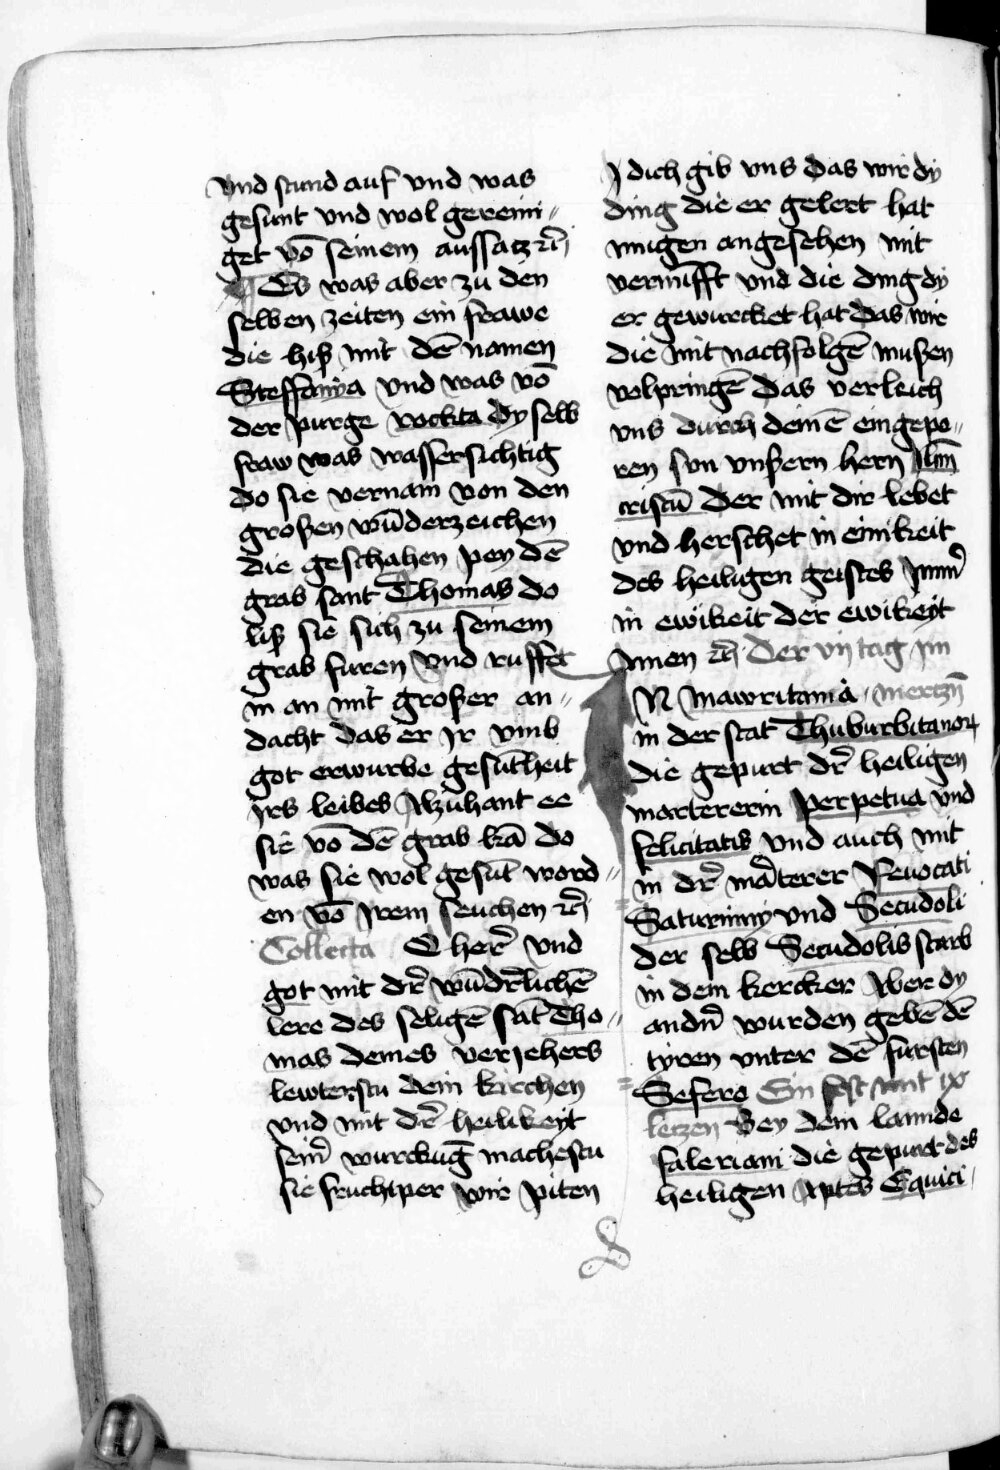 vnd stund auf vnd was
gesunt vnd wol gereini〃
get võ seinem aussatz ꝛc̃
¶ Es was aber zu den
selben zeiten ein frawe
die hiß mit dẽ namen
Steffania vnd was võ
der purge Rockita dy selb
fraw was wassersichtig
do sie vernam von den
großen wũderzeichen
die geschahen pey dẽ
grab sant Thomas do
liß sie sich zu seinem
grab furen vnd ruffet
in an mit großer an〃
dacht das er Ir vmb
got erwurbe gesũtheit
irs leibes Alzuhant ee
sie võ dẽ grab kã do
was sie wol gesũt word〃
en võ Irem seuchen ꝛc̃
Collecta O her̃ vnd
got mit dr̃ wũdr̃lichẽ
lere des seligẽ sãt Tho〃
mas deines veriehers
lewterstu dein kirchen
vnd mit dr̃ heilikeyt
sein̄ wurckũg machestu
sie fruchtper wir piten
I dich gib vns das wir dy
ding die er gelert hat
mugen angesehen mit
vernũfft vnd die ding dy
er gewurcket hat das wir
die mit nachfolgẽ mußen
volpringẽ das verleich
vns durch deinẽ eingepo〃
ren sun vnßern hern Ihm̃
cristũ der mit dir lebet
vnd herschet in einikeit
des heiligen geistes Imm̃
in ewikeit der ewikeyt
Amen ꝛc̃ Der vij tag im
N Mawritania mertzñ
in der stat Thuburbitanoꝝ
die gepurt dr̃ heiligen
martererin perpetua vnd
felicitatis vnd auch mit
in dr̃ mãterer Reuocati
Saturniny vnd Secudoli
der selb Secudolis starb
in dem kercker Aber dy
andñ wurden gebẽ dẽ
tyren vnter dẽ fursten
Sefero Ein fest mit ix
letzen Bey dem lannde
faleriani die gepurt des
heiligen Aptes Equici